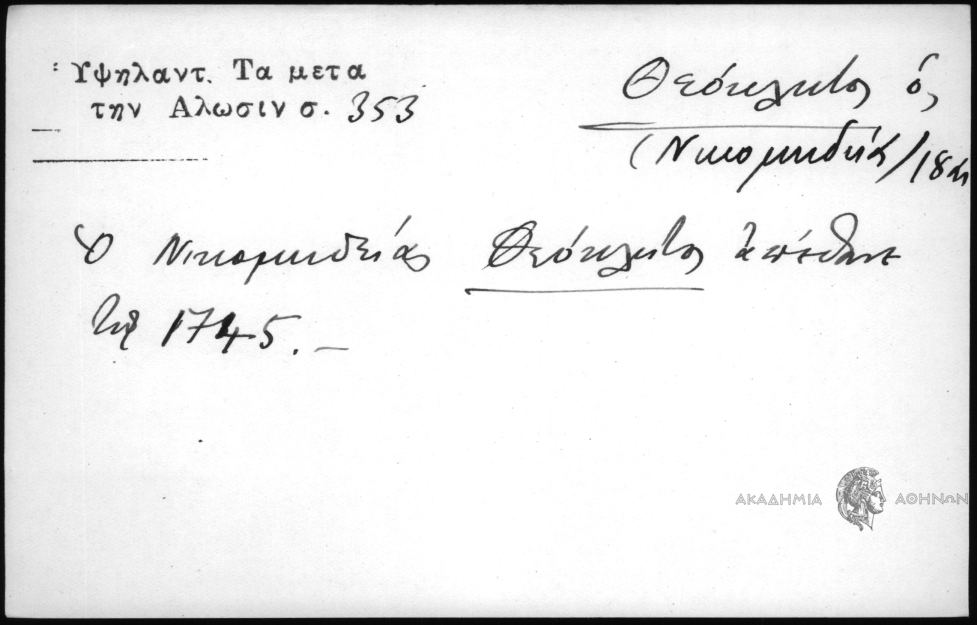 Ὑψηλαντ. Τα μετα
την Αλωσιν σ. 353
Θεόκλητος ὁ
(Νικομηδείας)
Ὁ Νικομηδείας Θεόκλητος ἀπέθανε
τῷ 1745. –
ΑΚΑΔΗΜΙΑ ΑΘΗΝΩΝ